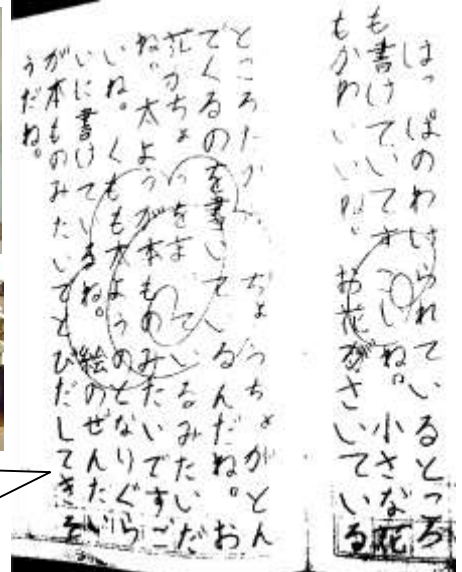 はっぱのわけられているところ
も書けていてすごいね。小さな花
もかわいいね。お花がさいている
ところだから、ちょうちょがとん
でくるのを書いているんだね。お
花がちょうちょをまっているみたいだ
ね。太ようが本ものみたいですご
いね。くもも太ようのとなりぐら
いに書けているね。絵のぜんたい
が本ものみたいでとびだしてきそ
うだね。